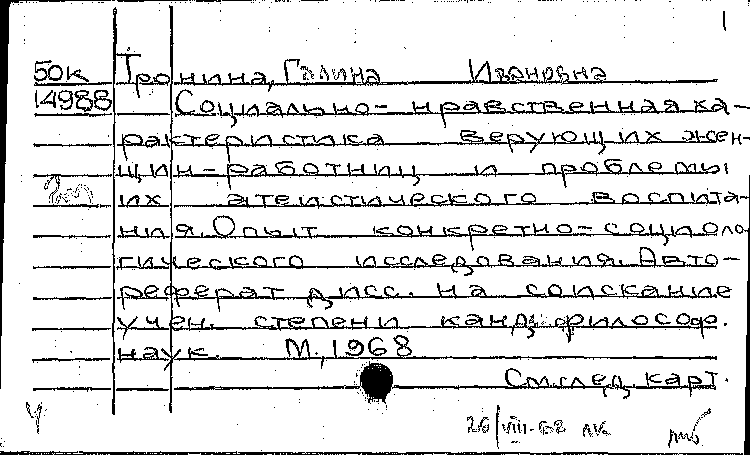 1
50к Тронина, Галина Ивановна
14988 Социально-нравственная ха-
рактеристика верующих жен-
щин-работниц и проблемы
их атеистического воспита-
ния. Опыт конкретно-социоло
гического исследования. Авто-
реферат дисс. на соискание
учен. степени канд. философ.
наук. М., 1968
См. след. карт.
26/VIII-68 лк